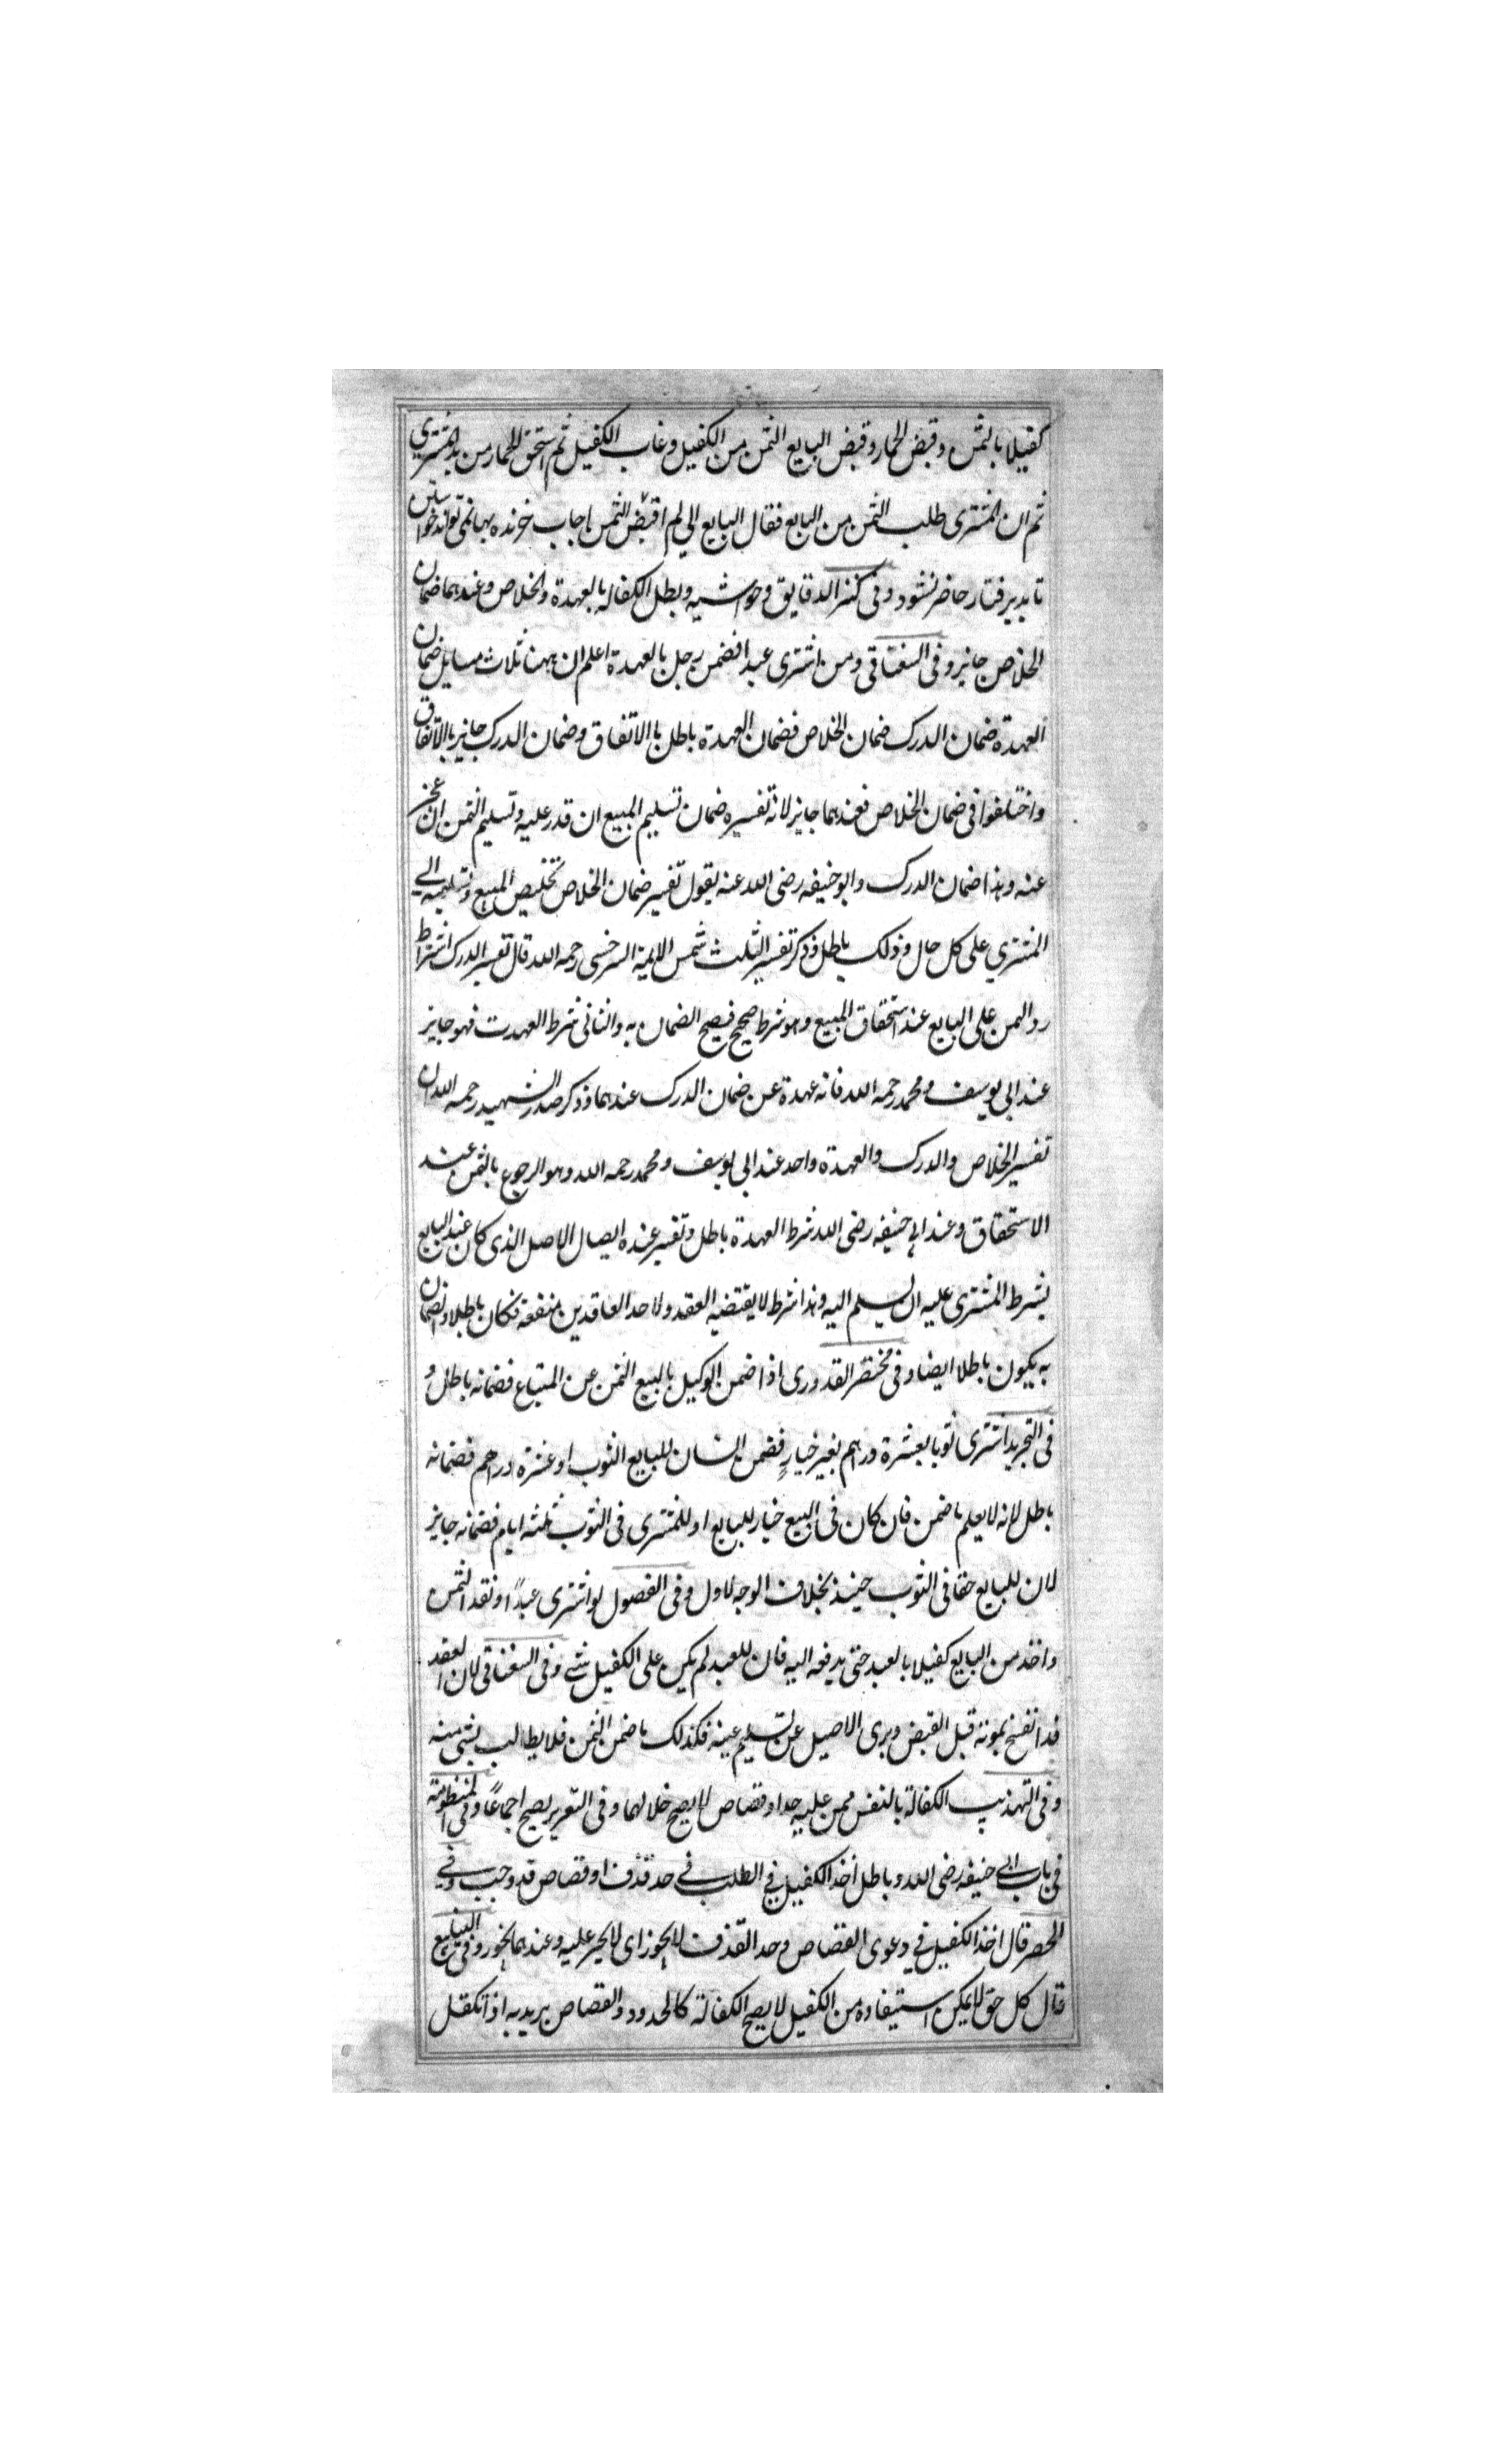 كفيلا بالثمن وقبض الحمار وقبض البايع الثمن من الكفيل وغاب الكفيل ثم استحق الحمار من يد المشتري
ثم ان المشترى طلب الثمن من البايع فقال البايع الى لم اقبض الثمن اجاب خرنده بها نمى تواند خواستن
تا پديرفتار حاضر نشود وفى كنز الدقايق وحواشيه وبطل الكفاله بالعهدة والخلاص وعندهما ضمان
الخلاص جايز وفى السغناقى ومن اشترى عبدا فضمن رجل بالعهدة اعلم ان ههنا ثلاث مسايل ضمان
العهدة ضمان الدرك ضمان الخلاص فضمان العهدة باطل باالاتفاق وضمان الدرك جايز باالاتفاق
واختلفوا فى ضمان الخلاص فعندهما جايز لانه تفسيره ضمان تسليم المبيع ان قدر عليه وتسليم الثمن ان عجز
عنه وهذا ضمان الدرك وابو حنيفه رضى الله عنه يقول تفسير ضمان الخلاص تخليص المبيع وتسليمه الى
المشتري على كل حال وذلك باطل وذكر تفسير الثلث شمس الايمة السرخسى رحمه الله قال تفسير الدرك اشتراط
رد الثمن على البايع عند استحقاق المبيع وهو شرط صحيح فيصح الضمان به والثانى شرط العهدت فهو جايز
عند ابى يوسف ومحمد رحمه الله فانه عهدة عن ضمان الدرك عندهما وذكر صدر الشهيد رحمه الله ان
تفسير الخلاص والدرك والعهدة واحد عند ابى يوسف ومحمد رحمه الله وهو الرجوع بالثمن عند
الاستحقاق وعند ابى حنيفه رضى الله شرط العهدة باطل وتفسير عنده ايصال الاصل الذى كان عند البايع
بشرط المشترى عليه ان يسلم اليه وهذا شرط لا يقتضيه العقد ولاحد العاقدين منفعة فكان باطلا والضمان
به يكون باطلا ايضا وفى مختصر القدورى اذا ضمن الوكيل بالبيع الثمن عن المبتاع فضمانه باطل و
فى التجريد اشترى ثوبا بعشرة دراهم بغير خيار فضمن انسان للبايع الثوب او عشرة دراهم فضمانه
باطل لانه لا يعلم ما ضمن فان كان فى البيع خيار للبايع او للمشترى فى الثوب ثلثه ايام فضمانه جايز
لان للبايع حقا فى الثوب حينئذ بخلاف الوجه الاول وفى الفصول لو اشترى عبدًا ونقد الثمن
واخذ من البايع كفيلا بالعبد حتى يدفعه اليه فان للعبد لم يكن على الكفيل شى وفى السغناقى لان العقد
قد انفسخ بموته قبل القبض وبرى الاصيل عن تسليم عينه فكذلك ما ضمن الثمن فلا يطالب بشى منه
وفى التهذيب الكفالة بالنفس ممن عليه حد او قصاص لا يصح خلا لهما وفى التعزير يصح اجماعًا وفى المنظومة
فى باب ابى حنيفه رضى الله وباطل اخذ الكفيل فى الطلب فى حد قذف او قصاص قد وجب وفى
الحصر قال اخذ الكفيل فى دعوى القصاص وحد القذف لا يجوز اى لا يجبر عليه وعندهما يجوز وفى الينابيع
قال كل حق لا يمكن استيفاوه من الكفيل لا يصح الكفالة كالحدود والقصاص يريد به اذا تكفل